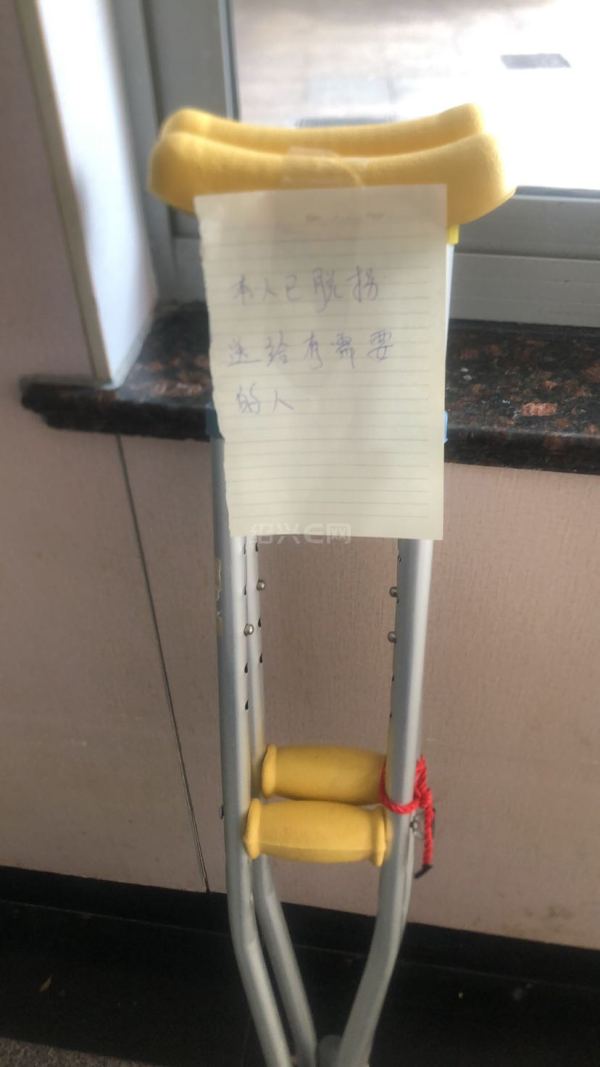 本人已脱拐
送给有需要
的人
绍兴E网